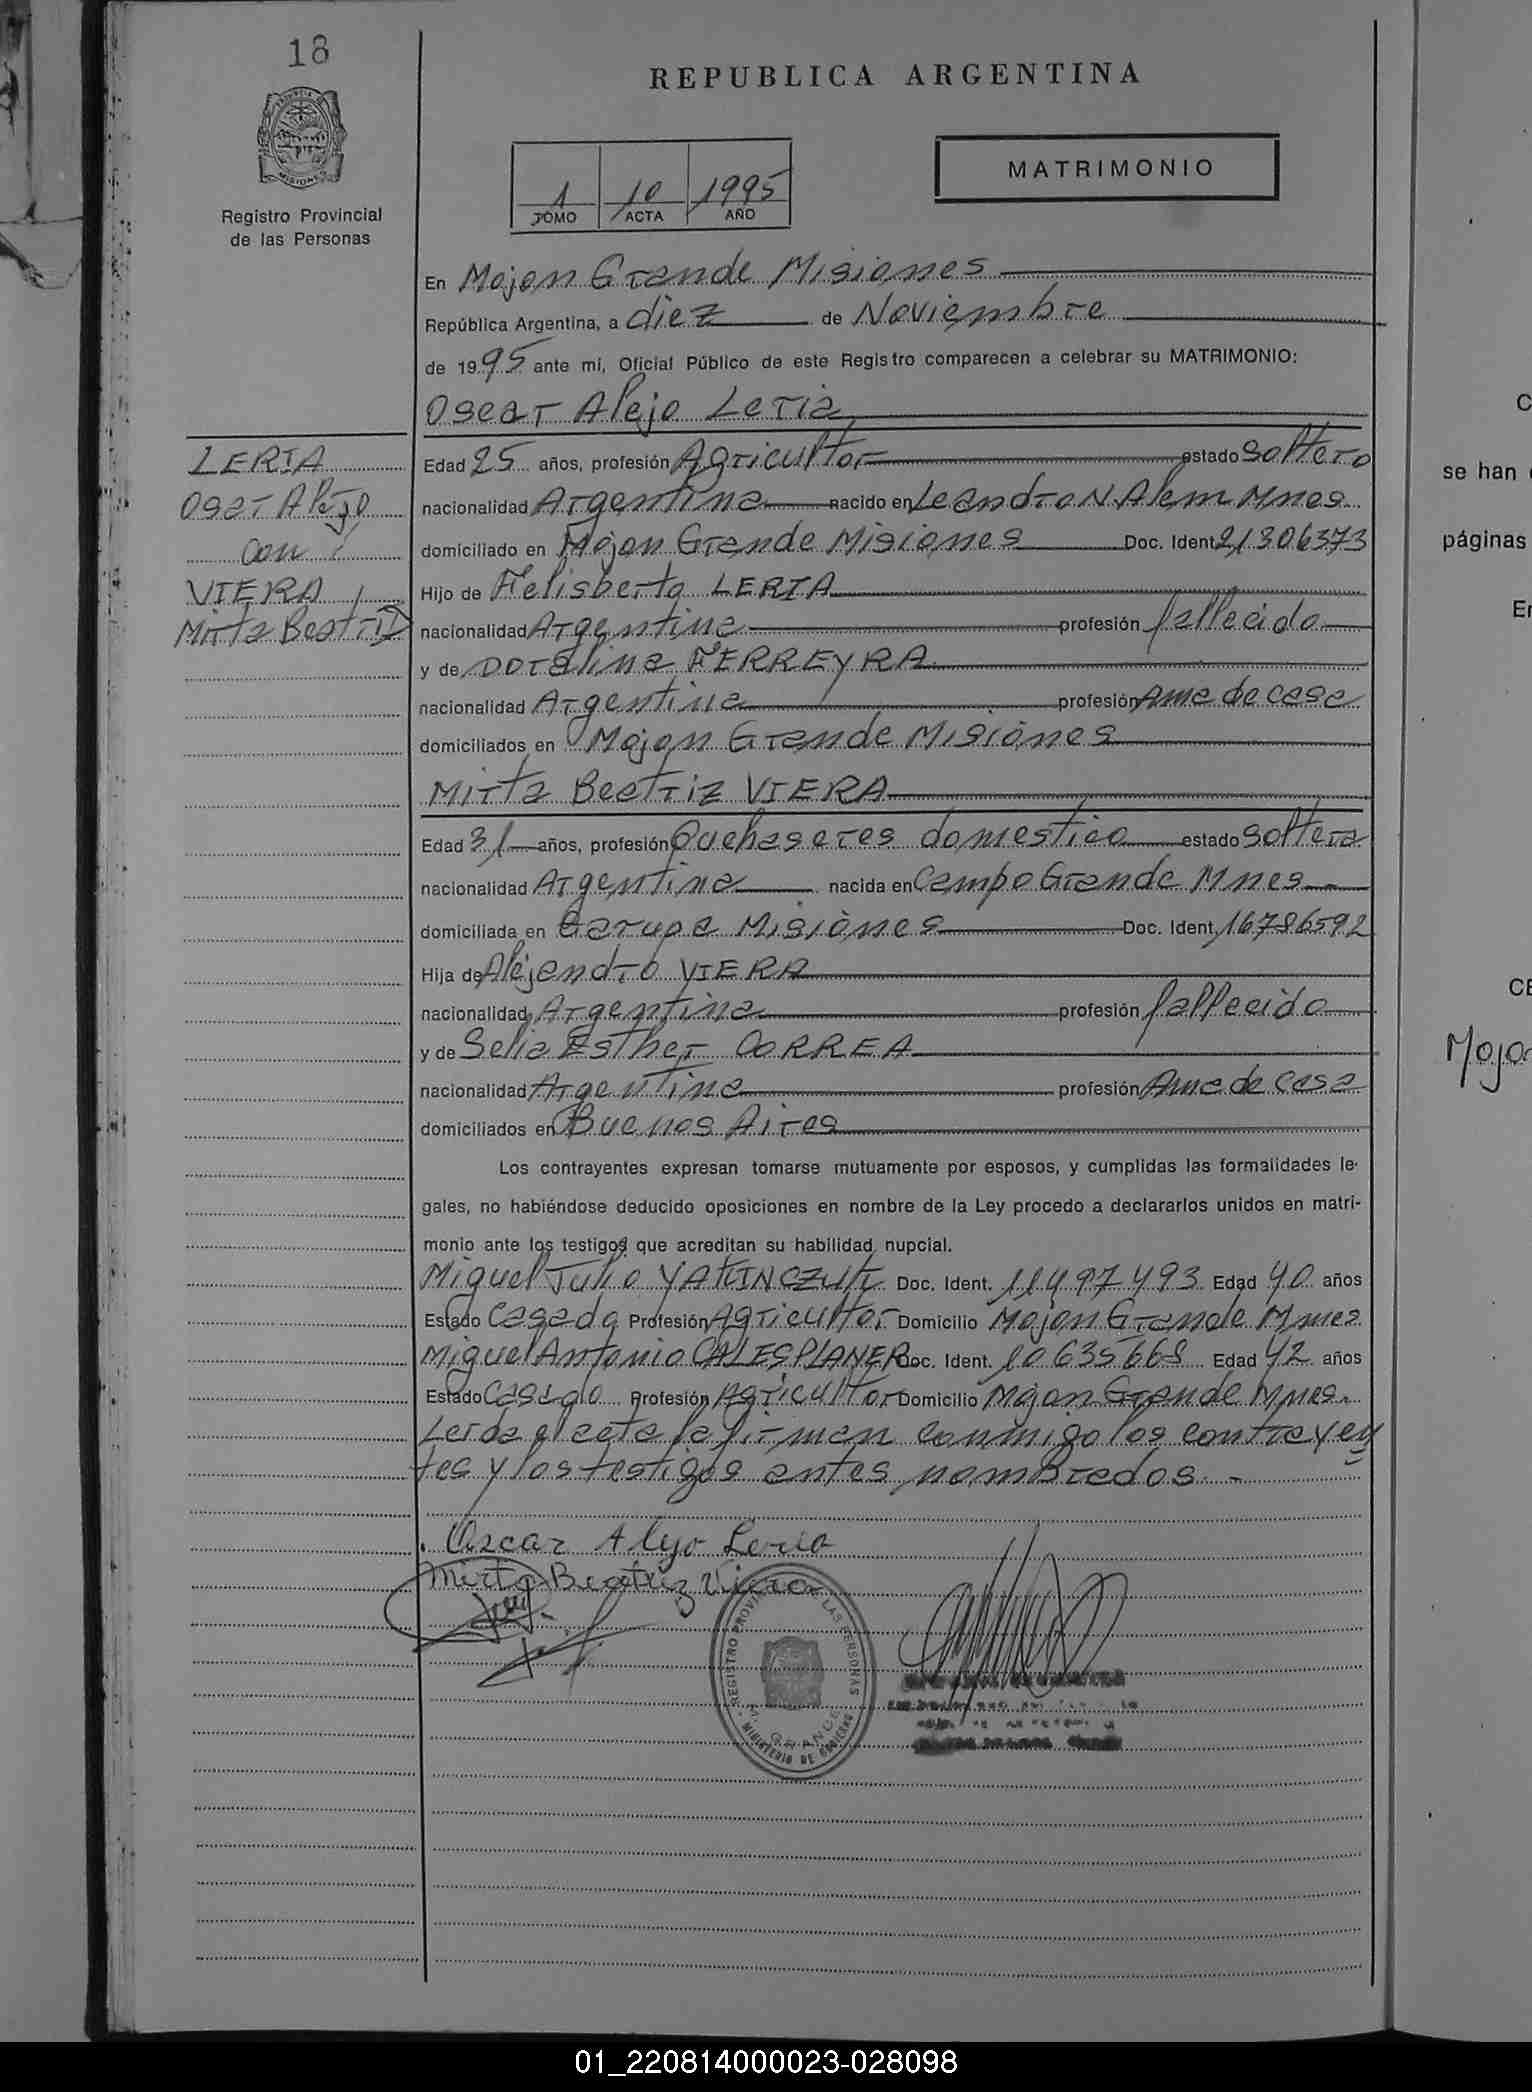 18
REPUBLICA ARGENTINA
MATRIMONIO
1 10 1995
TOMO ACTA AÑO
PROVINCIA DE
MISIONES
Registro Provincial
de las Personas
En Mojon Grande Misiones
República Argentina, a diez de Noviembre
de 1995 ante mí, Oficial Público de este Registro comparecen a celebrar su MATRIMONIO:
Oscar Alejo Leria
LERIA
Oscar Alejo
con
VIERA
Mirta Beatriz
Edad 25 años, profesión Agricultor estado soltero
nacionalidad Argentina nacido en Leandro N. Alem Mnes
domiciliado en Mojon Grande Misiones Doc. Ident 21306373
Hijo de Felisberto LERIA
nacionalidad Argentina profesión fallecido
y de Doralina FERREYRA
nacionalidad Argentina profesión Ama de casa
domiciliados en Mojon Grande Misiones
Mirta Beatriz VIERA
Edad 31 años, profesión Quehaseres domestico estado soltera
nacionalidad Argentina nacida en Campo Grande Mnes
domiciliada en Garupa Misiones Doc. Ident. 16786592
Hija de Alejandro VIERA
nacionalidad Argentina profesión fallecido
y de Selia Esther CORREA
nacionalidad Argentina profesión Ama de casa
domiciliados en Buenos Aires
Los contrayentes expresan tomarse mutuamente por esposos, y cumplidas las formalidades le-
gales, no habiéndose deducido oposiciones en nombre de la Ley procedo a declararlos unidos en matri-
monio ante los testigos que acreditan su habilidad nupcial.
Miguel Julio Doc. Ident. 11497493 Edad 40 años
Estado Casado Profesión Agricultor Domicilio Mojon Grande Mnes
Miguel Antonio CALESPLANER Doc. Ident. 10635668 Edad 42 años
Estado Casado Profesión Agricultor Domicilio Mojon Grande Mnes.
Leida el acta la firman conmigo los contrayen
tes y los testigos antes nombrados. -
Oscar Alejo Leria
Mirta Beatriz Viera
REGISTRO PROVINCIAL LAS PERSONAS
M. GRANDE
MINISTERIO DE GOBIERNO
C
se han
páginas
En
CE
Mojon
01_220814000023-028098